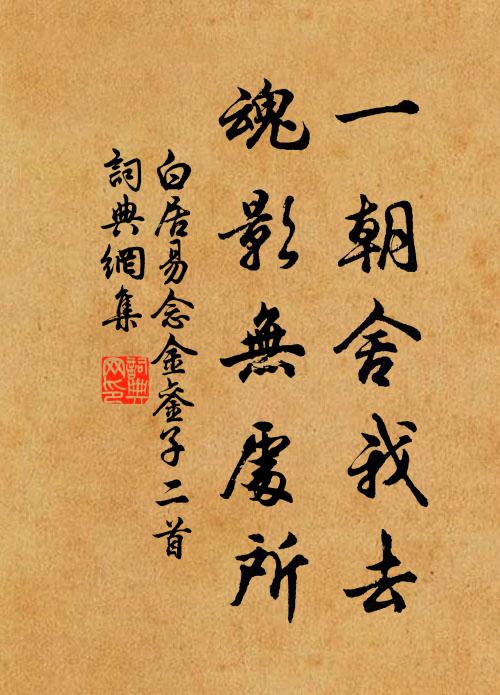 一朝舍我去
魂影無處所
白居易念金鑾子二首
詞典網集
詞典网印